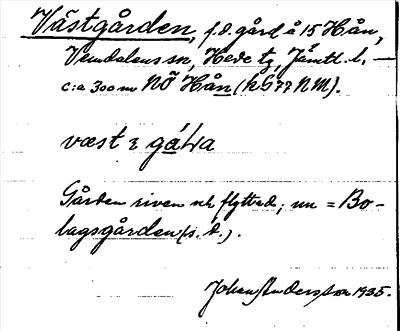 Västgården, f.d. gård å 15 Hån,
Vemdalens sn, Hede tg, Jämtl. l. —
c:a 300 m NÖ Hån (kG77NM).
væst
Gården riven och flyttad; nu = Bo-
lagsgården (s. d.).
Johan Andersson 1935.